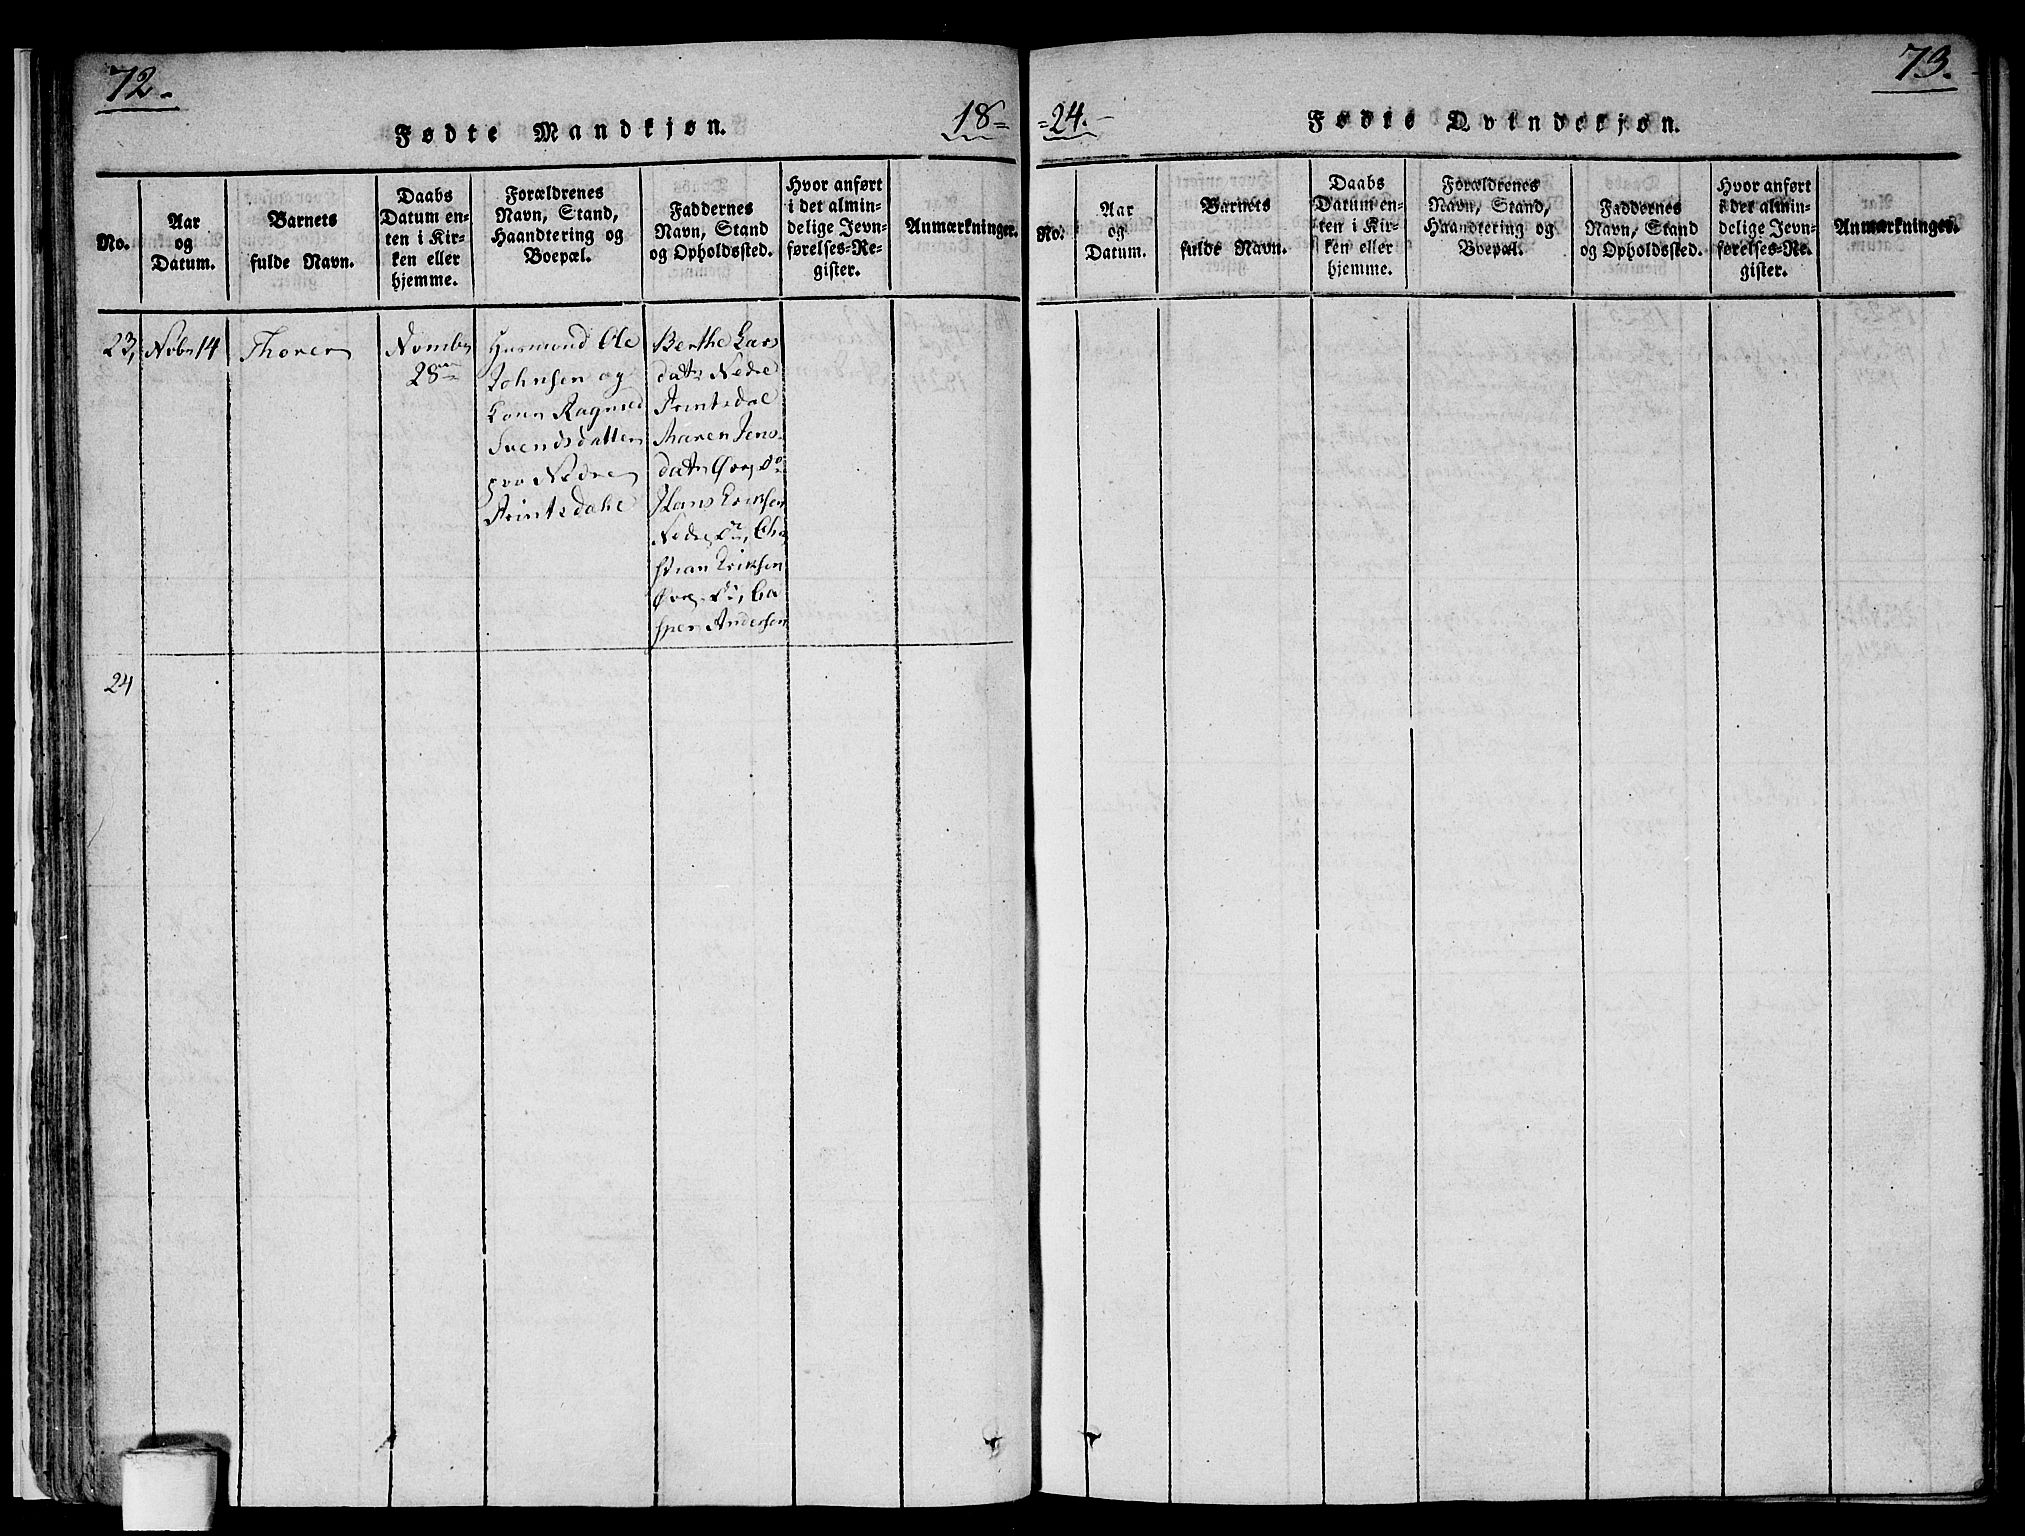 72.
Fødte Mandkjøn.
18
No.
Aar
og
Datum.
Barnets
fulde Navn.
Daabs
Datum en-
ten i Kir-
ken eller
hjemme.
Forældrenes
Navn, Stand,
Haandtering og
Boepæl.
Faddernes
Navn, Stand
og Opholdssted.
Hvor anført
i det almin-
delige Jevn-
førelses-Re-
gister.
Anmærkninger.
23,
Nvbr 14
Thorer
Nvmbr
28
Husmand Ole
Johnsen og
Kone Ragnild
Svendsdatter
paa Nedre
Arintsdahl
Berthe Lars
datr Nedre
Arintsdal
Maren Jens
datr Øvre Do
Hans Eriksen
Nedre Do, Chri
stian Eriksen
Øvre Do, Ca
sper Andersen
24
73.
24.
Fødte Qvindekjøn.
No.
Aar
og
Datum.
Barnets
fulde Navn.
Daabs
Datum en-
ten i Kir-
ken eller
hjemme.
Forældrenes
Navn, Stand,
Haandtering og
Boepæl.
Faddernes
Navn, Stand
og Opholdssted.
Hvor anført
i det almin-
delige Jevn-
førelses-Re-
gister.
Anmærkninger.